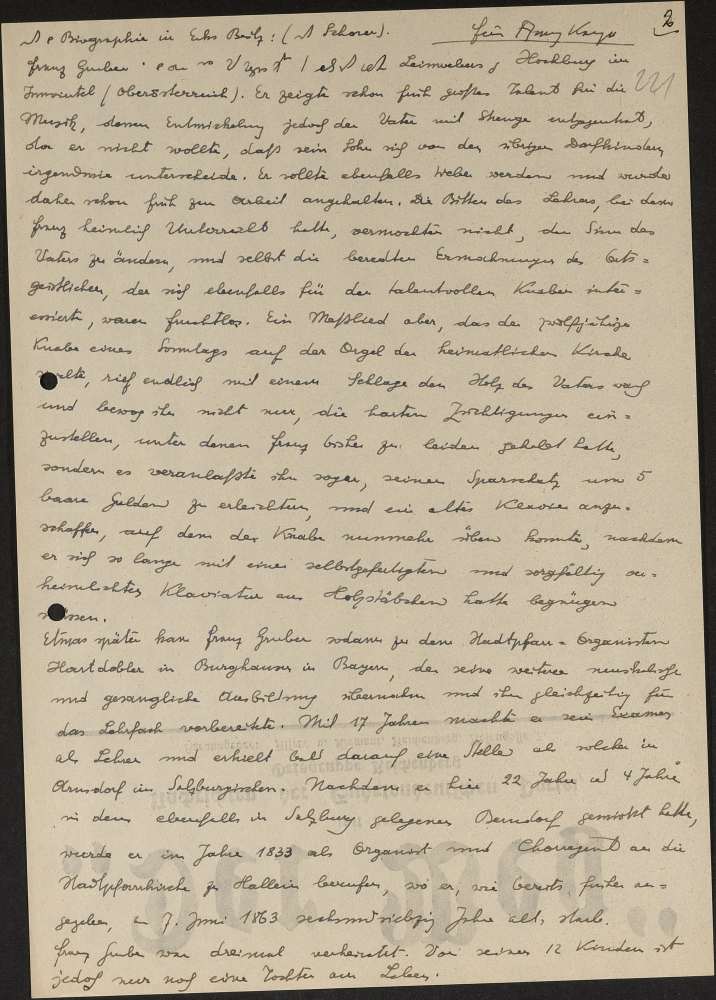 Biographie in Ecks Beitz: (Schorer). für Amy Kaye
2
221
Franz Gruber Leinwebers z Hochburg im
Innviertel (Oberösterreich). Er zeigte schon früh großes Talent für die
Musik, deren Entwickelung jedoch der Vater mit Strenge entgegentrat,
da er nicht wollte, daß sein Sohn sich von den übrigen Dorfkindern
irgendwie unterscheide. Er sollte ebenfalls Weber werden und wurde
daher schon früh zur Arbeit angehalten. Die Bitten des Lehrers, bei dem
Franz heimlich Unterricht hatte, vermochten nicht, den Sinn des
Vaters zu ändern, und selbst die beredten Ermahnungen des Orts=
geistlichen, der sich ebenfalls für den talentvollen Knaben inter=
essierte, waren fruchtlos. Ein Meßlied aber, das der zwölfjährige
Knabe eines Sonntags auf der Orgel der heimatlichen Kirche
spielte, rief endlich mit einem Schlage den Stolz des Vaters wach
und bewog ihn nicht nur, die harten Züchtigungen ein=
zustellen, unter denen Franz bisher zu leiden gehabt hatte,
sondern es veranlaßte ihn sogar, seinen Sparschatz um 5
baare Gulden zu erleichtern, und ein altes Klavier anzu=
schaffen, auf dem der Knabe nunmehr üben konnte, nachdem
er sich so lange mit einer selbstgefertigten und sorgfältig ver=
heimlichten Klaviatur aus Holzstäbchen hatte begnügen
müssen.
Etwas später kam Franz Gruber sodann zu dem Stadtpfarr=Organisten
Hartdobler in Burghausen in Bayern, der seine weitere musikalische
und gesangliche Ausbildung übernahm und ihn gleichzeitig für
das Lehrfach vorbereitete. Mit 17 Jahren machte er sein Examen
als Lehrer und erhielt bald darauf eine Stelle als solcher in
Arnsdorf im Salzburgischen. Nachdem er hier 22 Jahre und 4 Jahre
in dem ebenfalls in Salzburg gelegenen Berndorf gewirkt hatte,
wurde er im Jahre 1833 als Organist und Chorregent an die
Stadtpfarrkirche zu Hallein berufen, wo er, wie bereits früher an=
gegeben, am 7. Juni 1863 sechsundsiebzig Jahre alt, starb.
Franz Gruber war dreimal verheiratet. Von seinen 12 Kindern ist
jedoch nur noch eine Tochter am Leben.